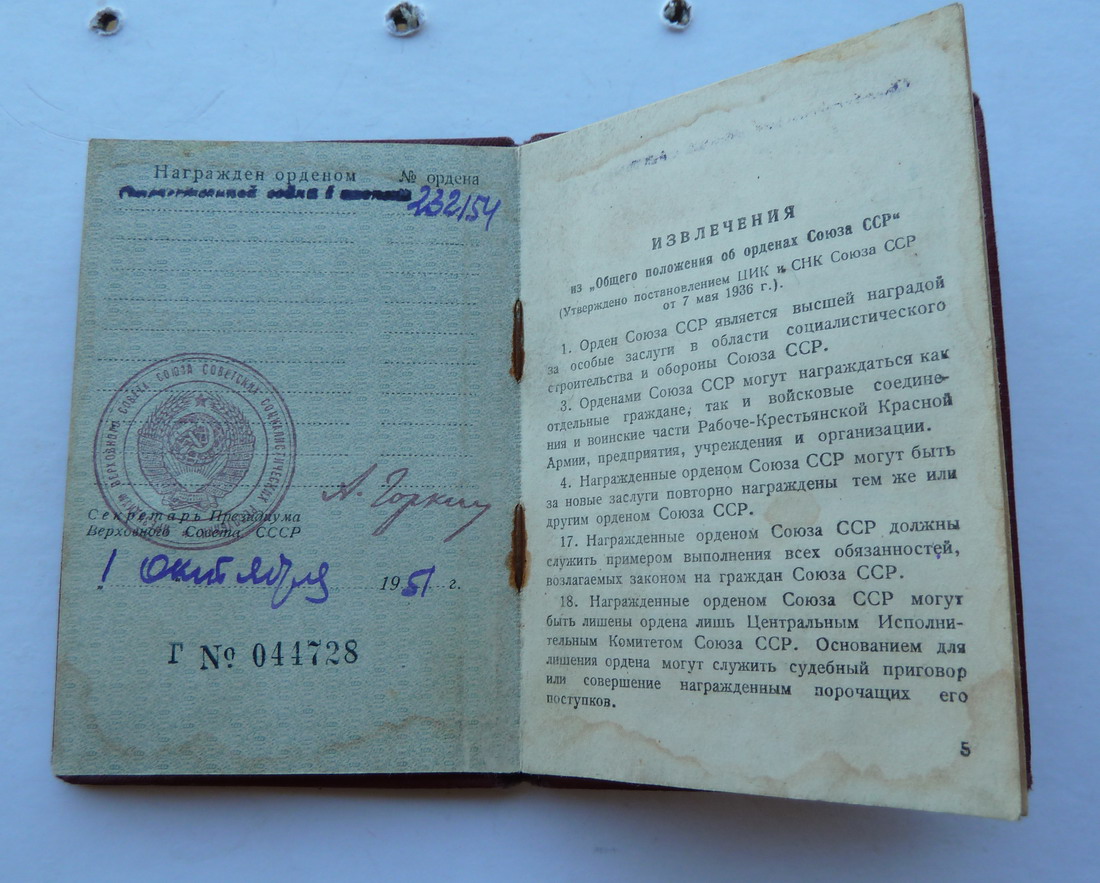 Награжден орденом № ордена
Отечественной войны I степени 232154
ПРЕЗИДИУМ ВЕРХОВНОГО СОВЕТА СОЮЗА СОВЕТСКИХ СОЦИАЛИСТИЧЕСКИХ
Секретарь Президиума
Верховного Совета СССР
А. Горкин
"1 октября 1951 г.
Г № 044728
ИЗВЛЕЧЕНИЯ
из „Общего положения об орденах Союза ССР“
(Утверждено постановлением ЦИК и СНК Союза ССР
от 7 мая 1936 г.).
1. Орден Союза ССР является высшей наградой
за особые заслуги в области социалистического
строительства и обороны Союза ССР.
3. Орденами Союза ССР могут награждаться как
отдельные граждане, так и войсковые соедине-
ния и воинские части Рабоче-Крестьянской Красной
Армии, предприятия, учреждения и организации.
4. Награжденные орденом Союза ССР могут быть
за новые заслуги повторно награждены тем же или
другим орденом Союза ССР.
17. Награжденные орденом Союза ССР должны
служить примером выполнения всех обязанностей,
возлагаемых законом на граждан Союза ССР.
18. Награжденные орденом Союза ССР могут
быть лишены ордена лишь Центральным Исполни-
тельным Комитетом Союза ССР. Основанием для
лишения ордена могут служить судебный приговор
или совершение награжденным порочащих его
поступков.
5